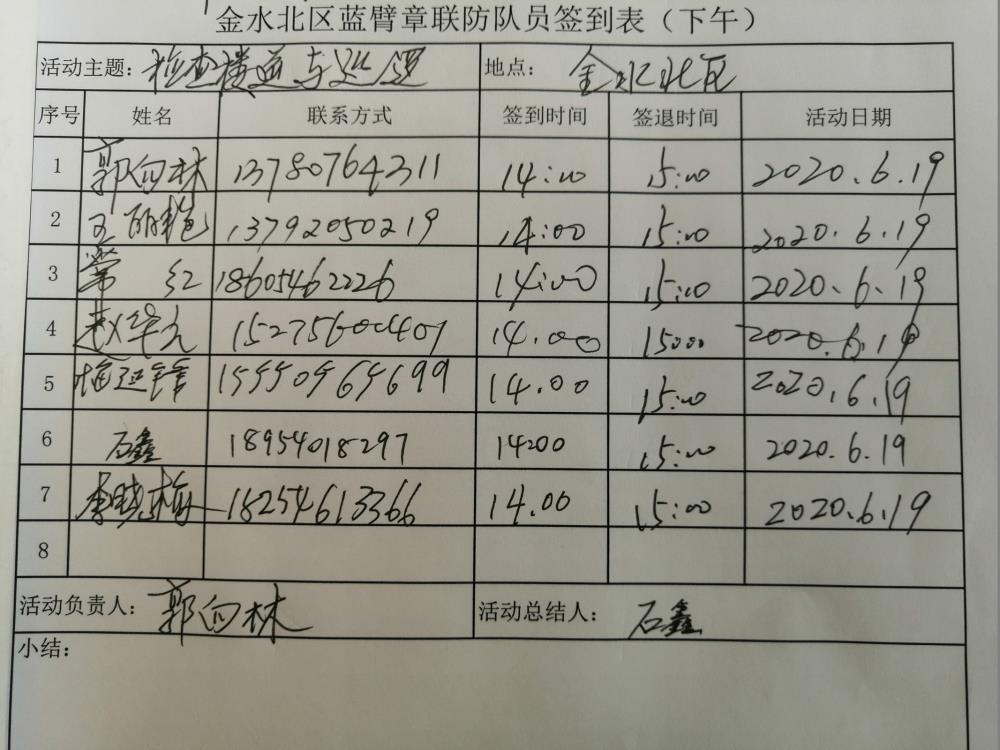 金水北区蓝臂章联防队员签到表（下午）
活动主题：检查楼道与巡逻 地点：金水北区
序号 姓名 联系方式 签到时间 签退时间 活动日期
1 郭向林 13780764311 14:00 15:00 2020.6.19
2 王丽艳 13792050219 14:00 15:00 2020.6.19
3 常红 18605462226 14:00 15:00 2020.6.19
4 赵华元 15275600407 14.00 15:00 2020.6.19
5 梅延锋 15550565699 14.00 15:00 2020.6.19
6 石鑫 18954018297 1400 15:00 2020.6.19
7 李晓梅 18254613366 14.00 15:00 2020.6.19
8
活动负责人：郭向林 活动总结人：石鑫
小结：